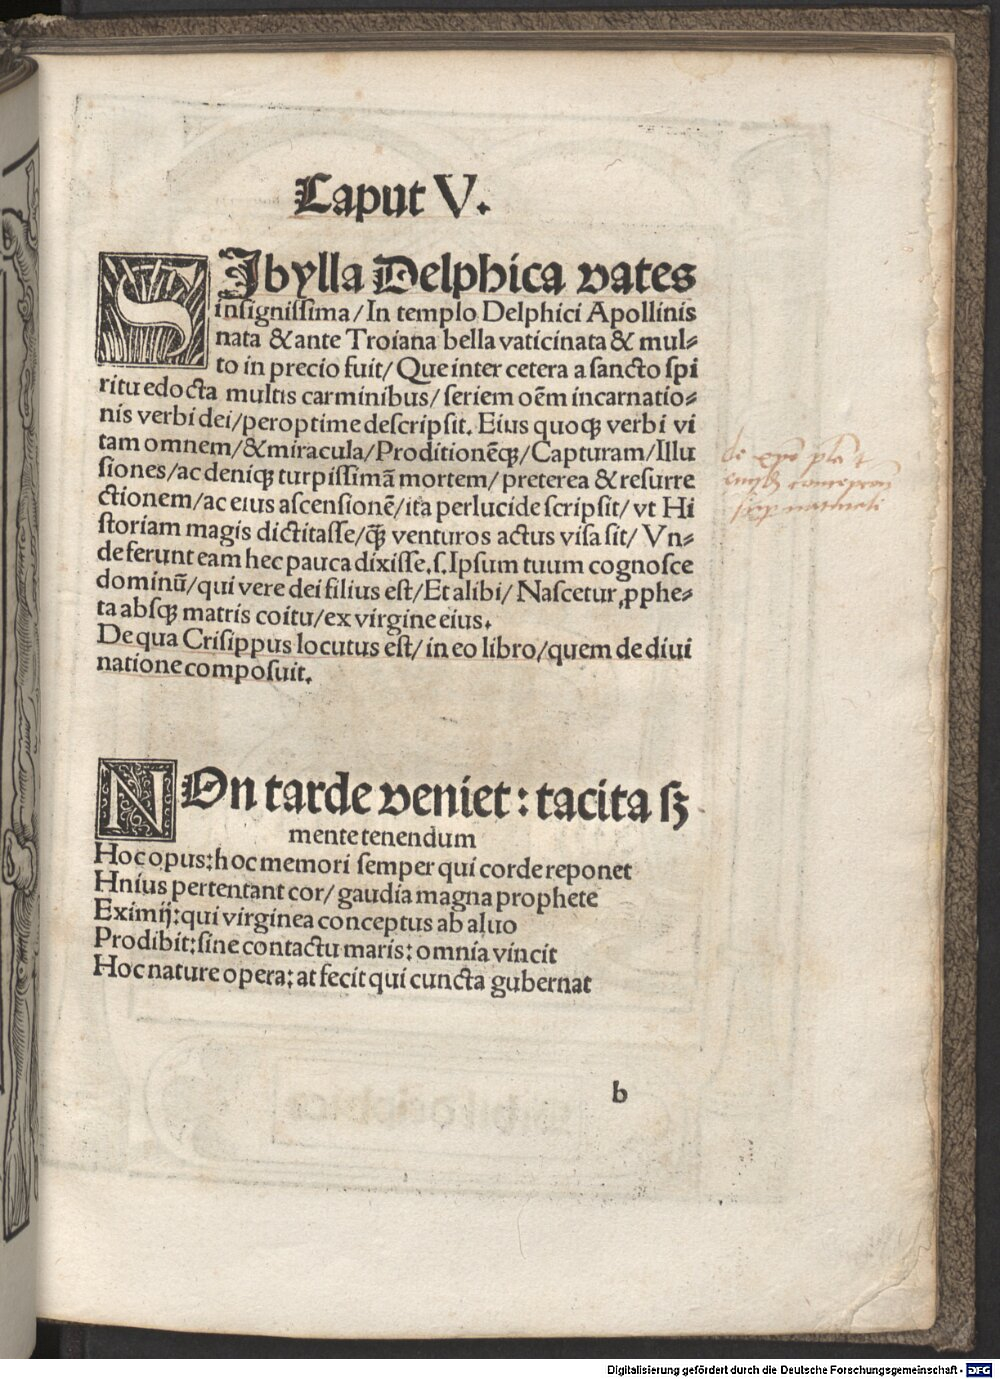 Caput V.
SJbylla Delphica vates
insignissima/In templo Delphici Apollinis
nata & ante Troiana bella vaticinata & mul⸗
to in precio fuit/ Que inter cetera a sancto spi
ritu edocta multis carminibus/ seriem oēm incarnatio⸗
nis verbi dei/peroptime descripsit. Eius quoqꝫ verbi vi
tam omnem/&miracula/Proditionēqꝫ/Capturam/Illu
siones/ac deniqꝫ turpissimā mortem/ preterea & resurre
ctionem/ac eius ascensionē/ita perlucide scripsit/ vt Hi
storiam magis dictitasse/qꝫ̄ venturos actus visa sit/ Vn⸗
de ferunt eam hec pauca dixisse.s.Ipsum tuum cognosce
dominū/qui vere dei filius est/Et alibi/ Nascetur ꝓphe⸗
ta absqꝫ matris coitu/ex virgine eius.
De qua Crisippus locutus est/in eo libro/quem de diui
natione composuit.
NOn tarde veniet: tacita sꝫ
mente tenendum
Hoc opus:hoc memori semper qui corde reponet
Hnius pertentant cor/ gaudia magna prophete
Eximij:qui virginea conceptus ab aluo
Prodibit:sine contactu maris: omnia vincit
Hoc nature opera: at fecit qui cuncta gubernat
b
Digitalisierung gefördert durch die Deutsche Forschungsgemeinschaft - DFG